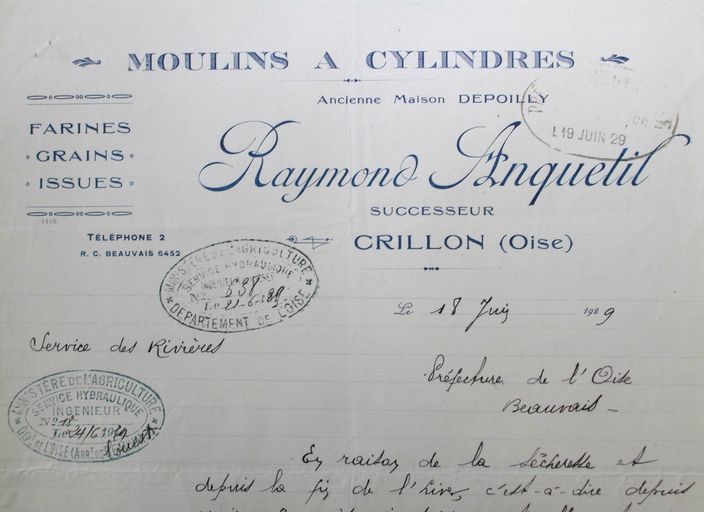 MOULINS A CYLINDRES
Ancienne Maison DEPOILLY
FARINES
GRAINS
ISSUES
Raymond Anquetil
SUCCESSEUR
CRILLON (Oise)
TÉLÉPHONE 2
R. C. BEAUVAIS 6452
L 19 JUIN 29
MINISTÈRE DE L'AGRICULTURE
SERVICE HYDRAULIQUE
DÉPARTEMENT DE L'OISE
Le 18 Juin 1929
Service des Rivières
Préfecture de l'Oise
Beauvais
MINISTÈRE DE L'AGRICULTURE
SERVICE HYDRAULIQUE
INGÉNIEUR
En raison de la sécheresse et
depuis la fin de l'hiver, c'est-à-dire depuis